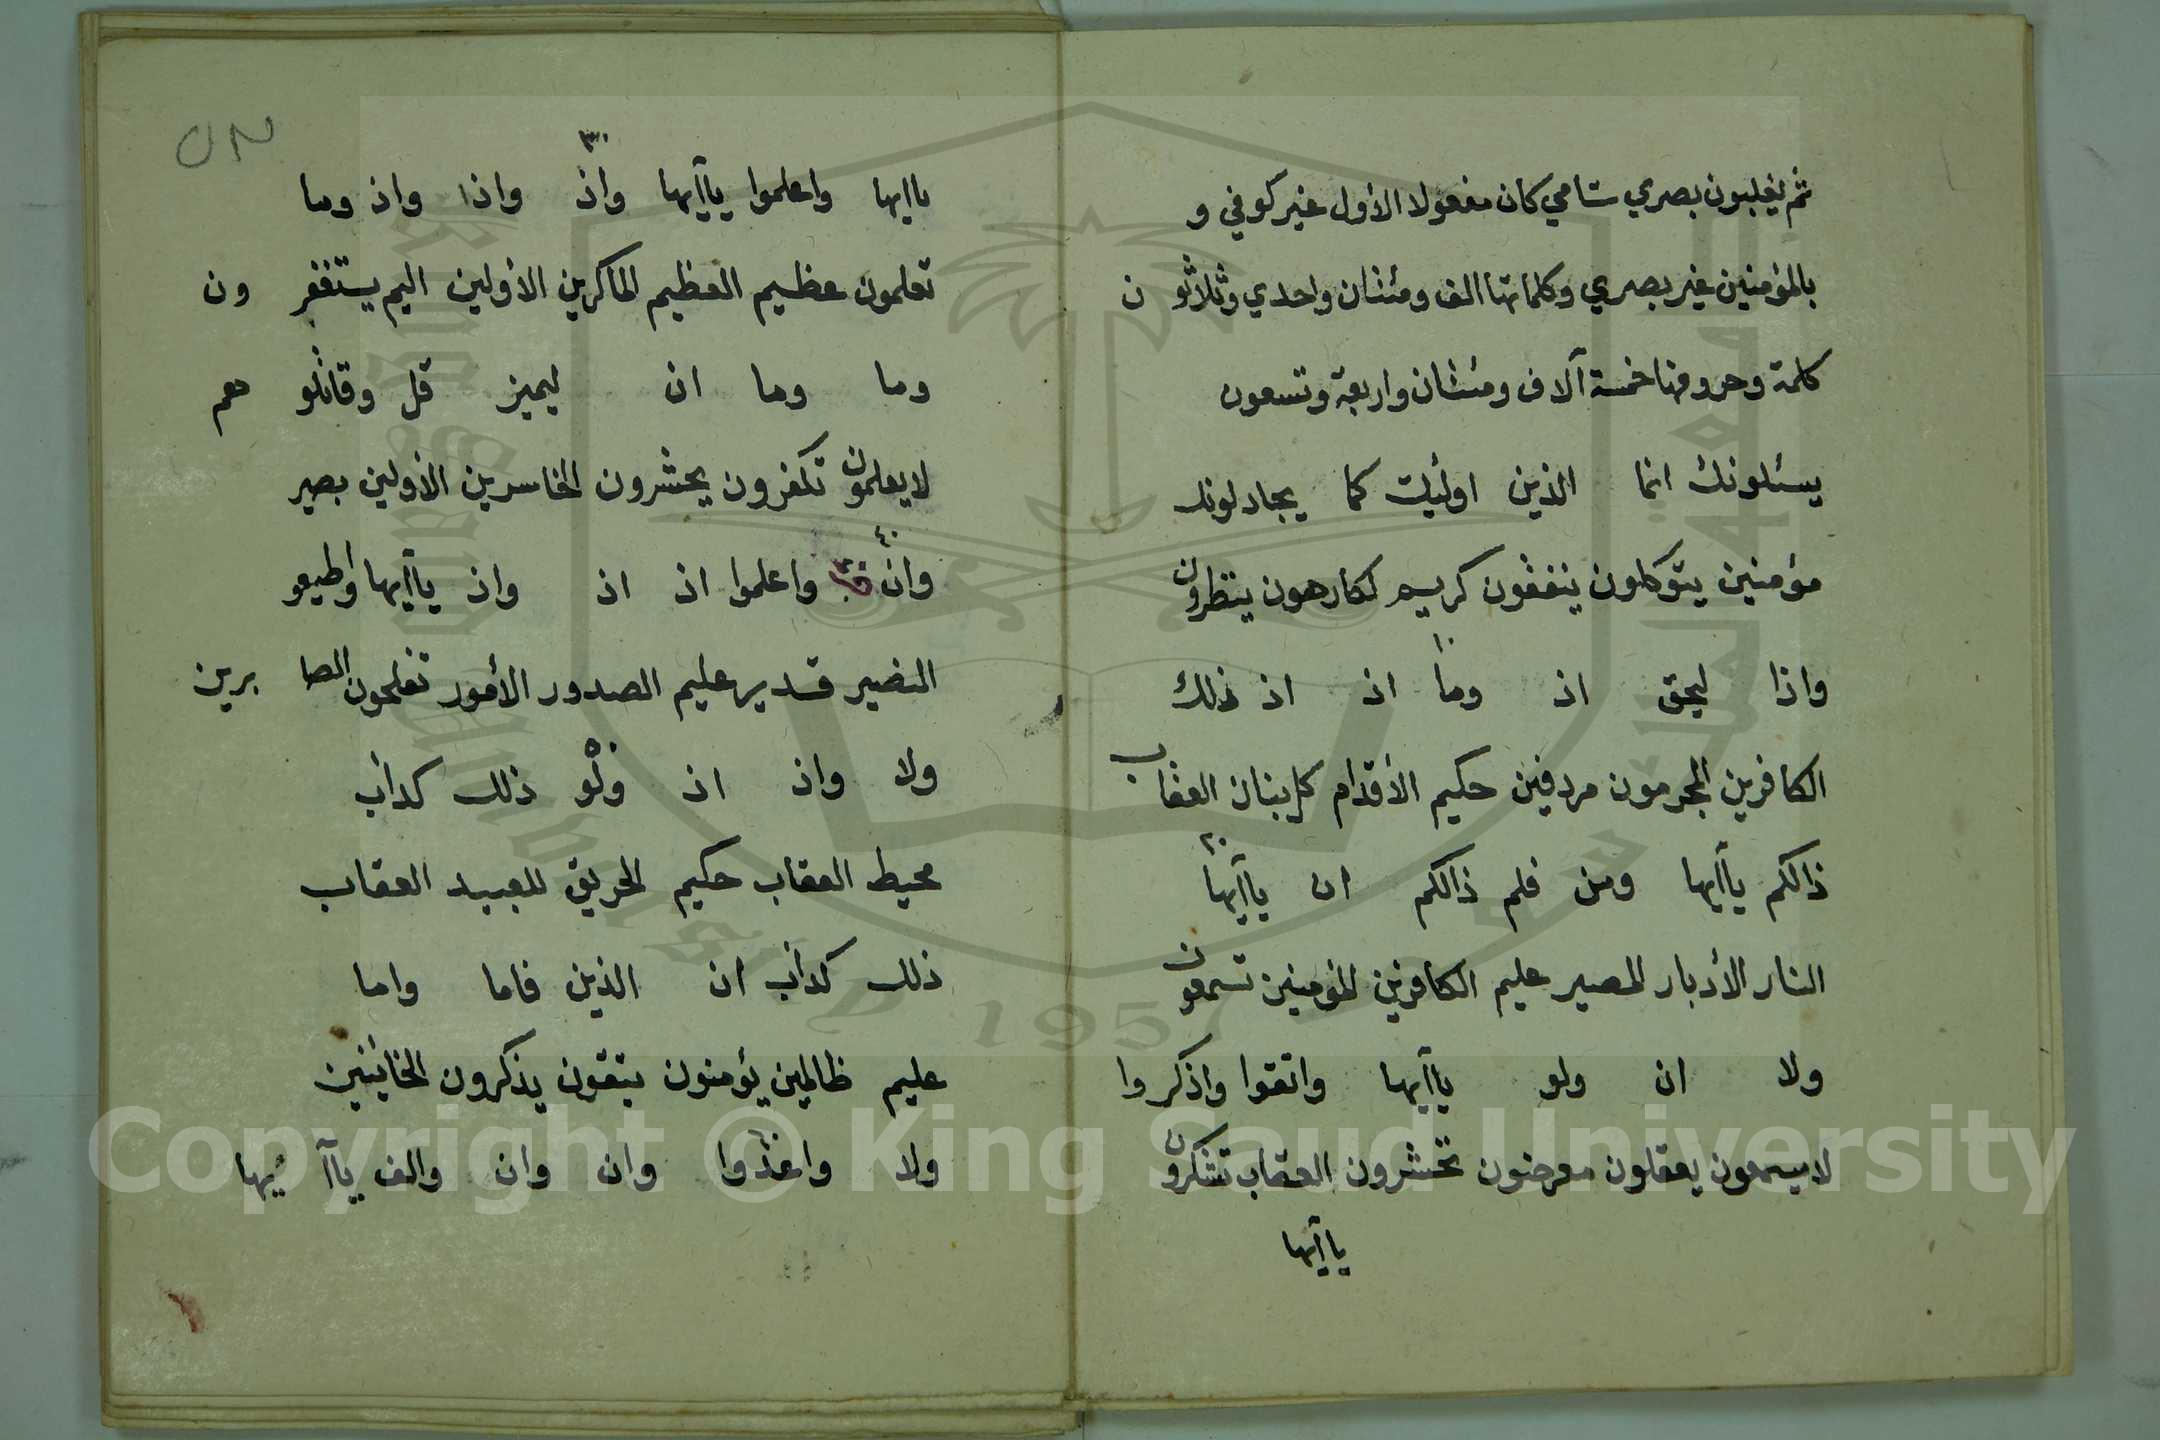 ثم يغلبون بصري شامي كان مفعولا الاول غير كوفي و
بالمؤمنين غير بصري وكلماتها الف ومئتان واحدي وثلاثون
كلمة وحروفها خمسة آلاف ومئتان واربعة وتسعون
يسئلونك انما الذين اولئك كما يجادلونك
مؤمنين يتوكلون ينفقون كريم لكارهون ينظرون
١٠
واذا ليحق اذ وما اذ اذ ذلك
الكافرين المجرمون مردفين حكيم الأقدام كل بنان العقاب
٢٠
ذالكم ياآيها ومن فلم ذالكم ان ياآيها
النار الأدبار المصير عليم الكافرين المؤمنين تسمعون
ولا ان ولو ياآيها واتقوا واذكروا
لا يسمعون يعقلون معرضون تحشرون العقاب تشكرون
ياآيها
٣٠
ياايها واعلموا ياآيها واذ واذا واذ وما
تعلمون عظيم العظيم الماكرين الاولين اليم يستغفرون
وما وما ان ليميز قل وقاتلوهم
لا يعلمون تكفرون يحشرون الخاسرين الاولين بصير
٤٠
وان واعلموا اذ اذ واذ ياآيها واطيعوا
النصير قدير عليم الصدور الأمور تفلحون الصابرين
٥٠
ولا واذ اذ ولو ذلك كدأب
محيط العقاب حكيم الحريق للعبيد العقاب
ذلك كدأب ان الذين فاما واما
عليم ظالمين يؤمنون يتقون يذكرون الخائنين
٦٠
ولا واعدوا وان وان والف ياآيها
Copyright © King Saud University
King Saud University
1957